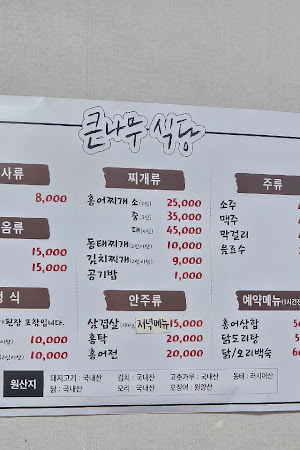 큰나무 식당
사류
8,000
음류
15,000
15,000
정 식
된장 포함입니다.
10,000
10,000
찌개류
홍어찌개 소 25,000
중 35,000
대 45,000
동태찌개 10,000
김치찌개 9,000
공기밥 1,000
안주류
삼겹살 저녁메뉴 15,000
홍탕 20,000
홍어전 20,000
주류
소주
맥주
막걸리
음료수
예약메뉴
홍어삼합
닭도리탕
닭/오리백숙
원산지
돼지고기 : 국내산 김치 : 국내산 고춧가루 : 국내산 동태 : 러시아산
닭 : 국내산 오리 : 국내산 오징어 : 원양산